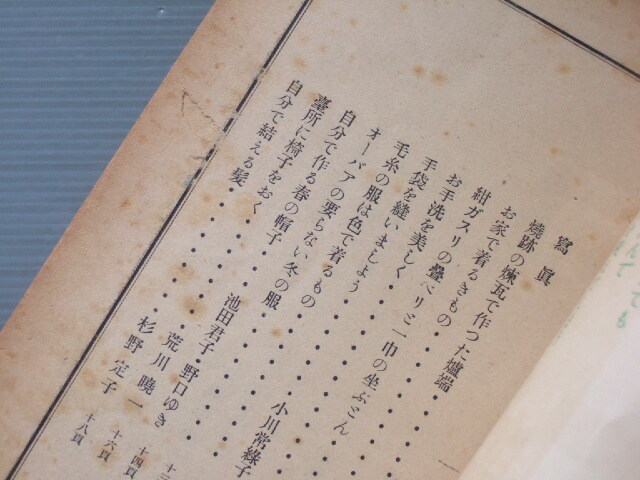 寫眞
燒跡の煉瓦で作つた爐端
お家で着るきもの
紺ガスリの疊ベリと一巾の坐ぶとん
お手洗を美しく
手袋を縫いましよう
毛糸の服は色で着るもの
オーバアの要らない冬の服 小川常綠子
自分で作る春の帽子 野口ゆき
臺所に椅子をおく 池田君子 荒川曉一 十四頁
自分で結える髮 杉野定子 十六頁
十八頁